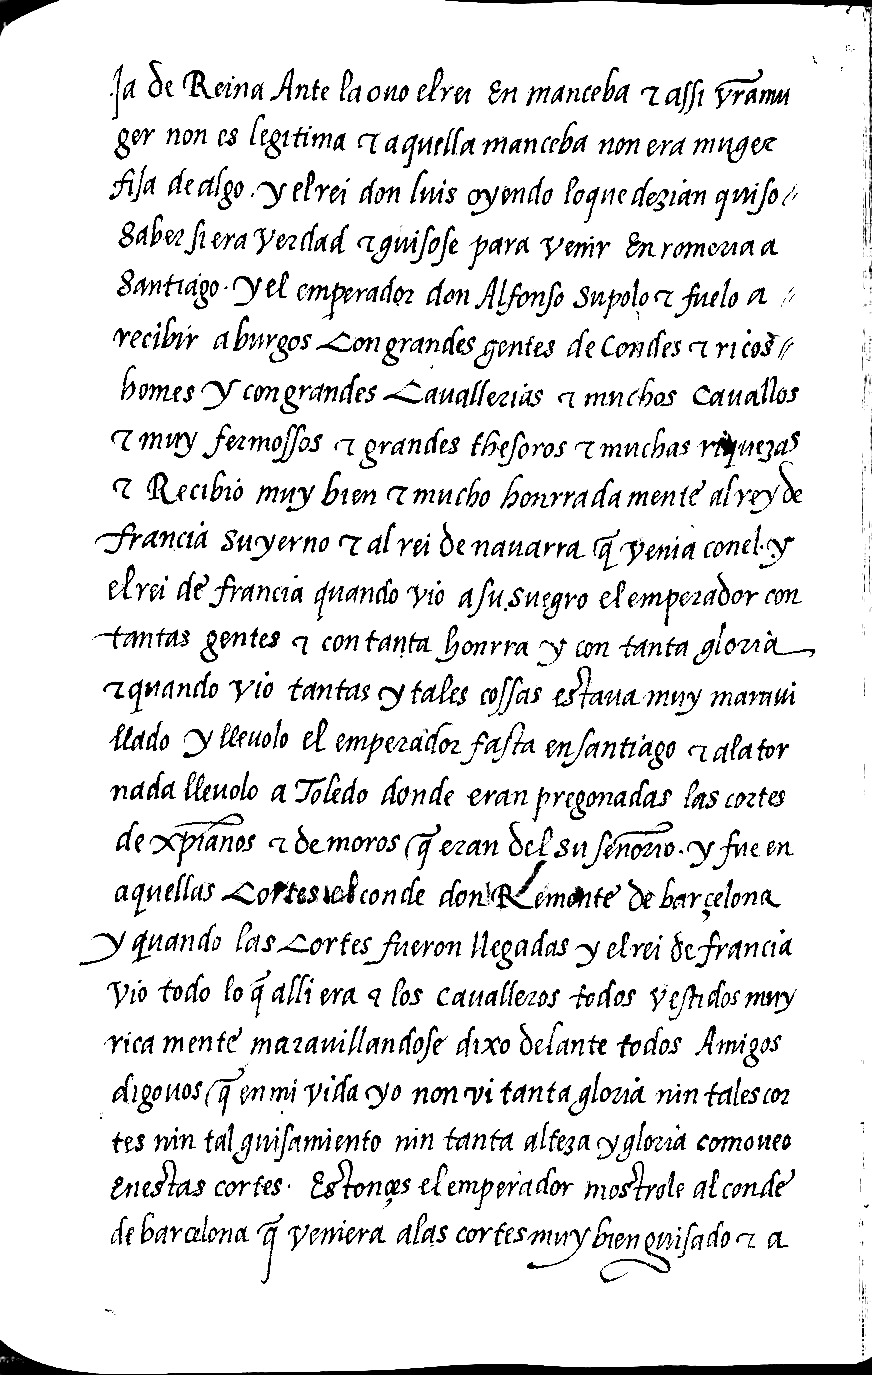 ja de Reina Ante la ouo el rei En manceba τ assi vr̃a mu
ger non es legitima τ a quella manceba non era muger
fija de algo. y el rei don luis oyendo lo que dezian quiso
Saber si era verdad τ guisose para venir En romeria a
Santiago. y el emperador don Alfonso supolo τ fuelo a
recibir a burgos Con grandes gentes de Condes τ ricos
homes y con grandes Cauallerias τ muchos Cauallos
τ muy fermossos τ grandes thesoros τ muchas riquezas
τ Recibio muy bien τ mucho honrrada mente al rey de
francia su yerno τ al rei de nauarra q̃ venia conel. y
el rei de francia quando vio a su suegro el emperador con
tantas gentes τ con tanta honrra y con tanta gloria
τ quando vio tantas y tales cossas estaua muy maraui
llado y lleuolo el emperador fasta en santiago τ a la tor
nada lleuolo a Toledo donde eran pregonadas las cortes
de xp̃ianos τ de moros q̃ eran del su señorio. y fue en
aquellas Cortes el conde don Remonte de barçelona
y quando las Cortes fueron llegadas y el rei de francia
vio todo lo q̃ alli era τ los caualleros todos vestidos muy
rica mente marauillandose dixo delante todos Amigos
digouos q̃ en mi vida yo non vi tanta gloria nin tales cor
tes nin tal guisamiento nin tanta alteza y gloria como ueo
En estas cortes. Estonçes el emperador mostrole al conde
de barcelona q̃ veniera a las cortes muy bien guisado τ a